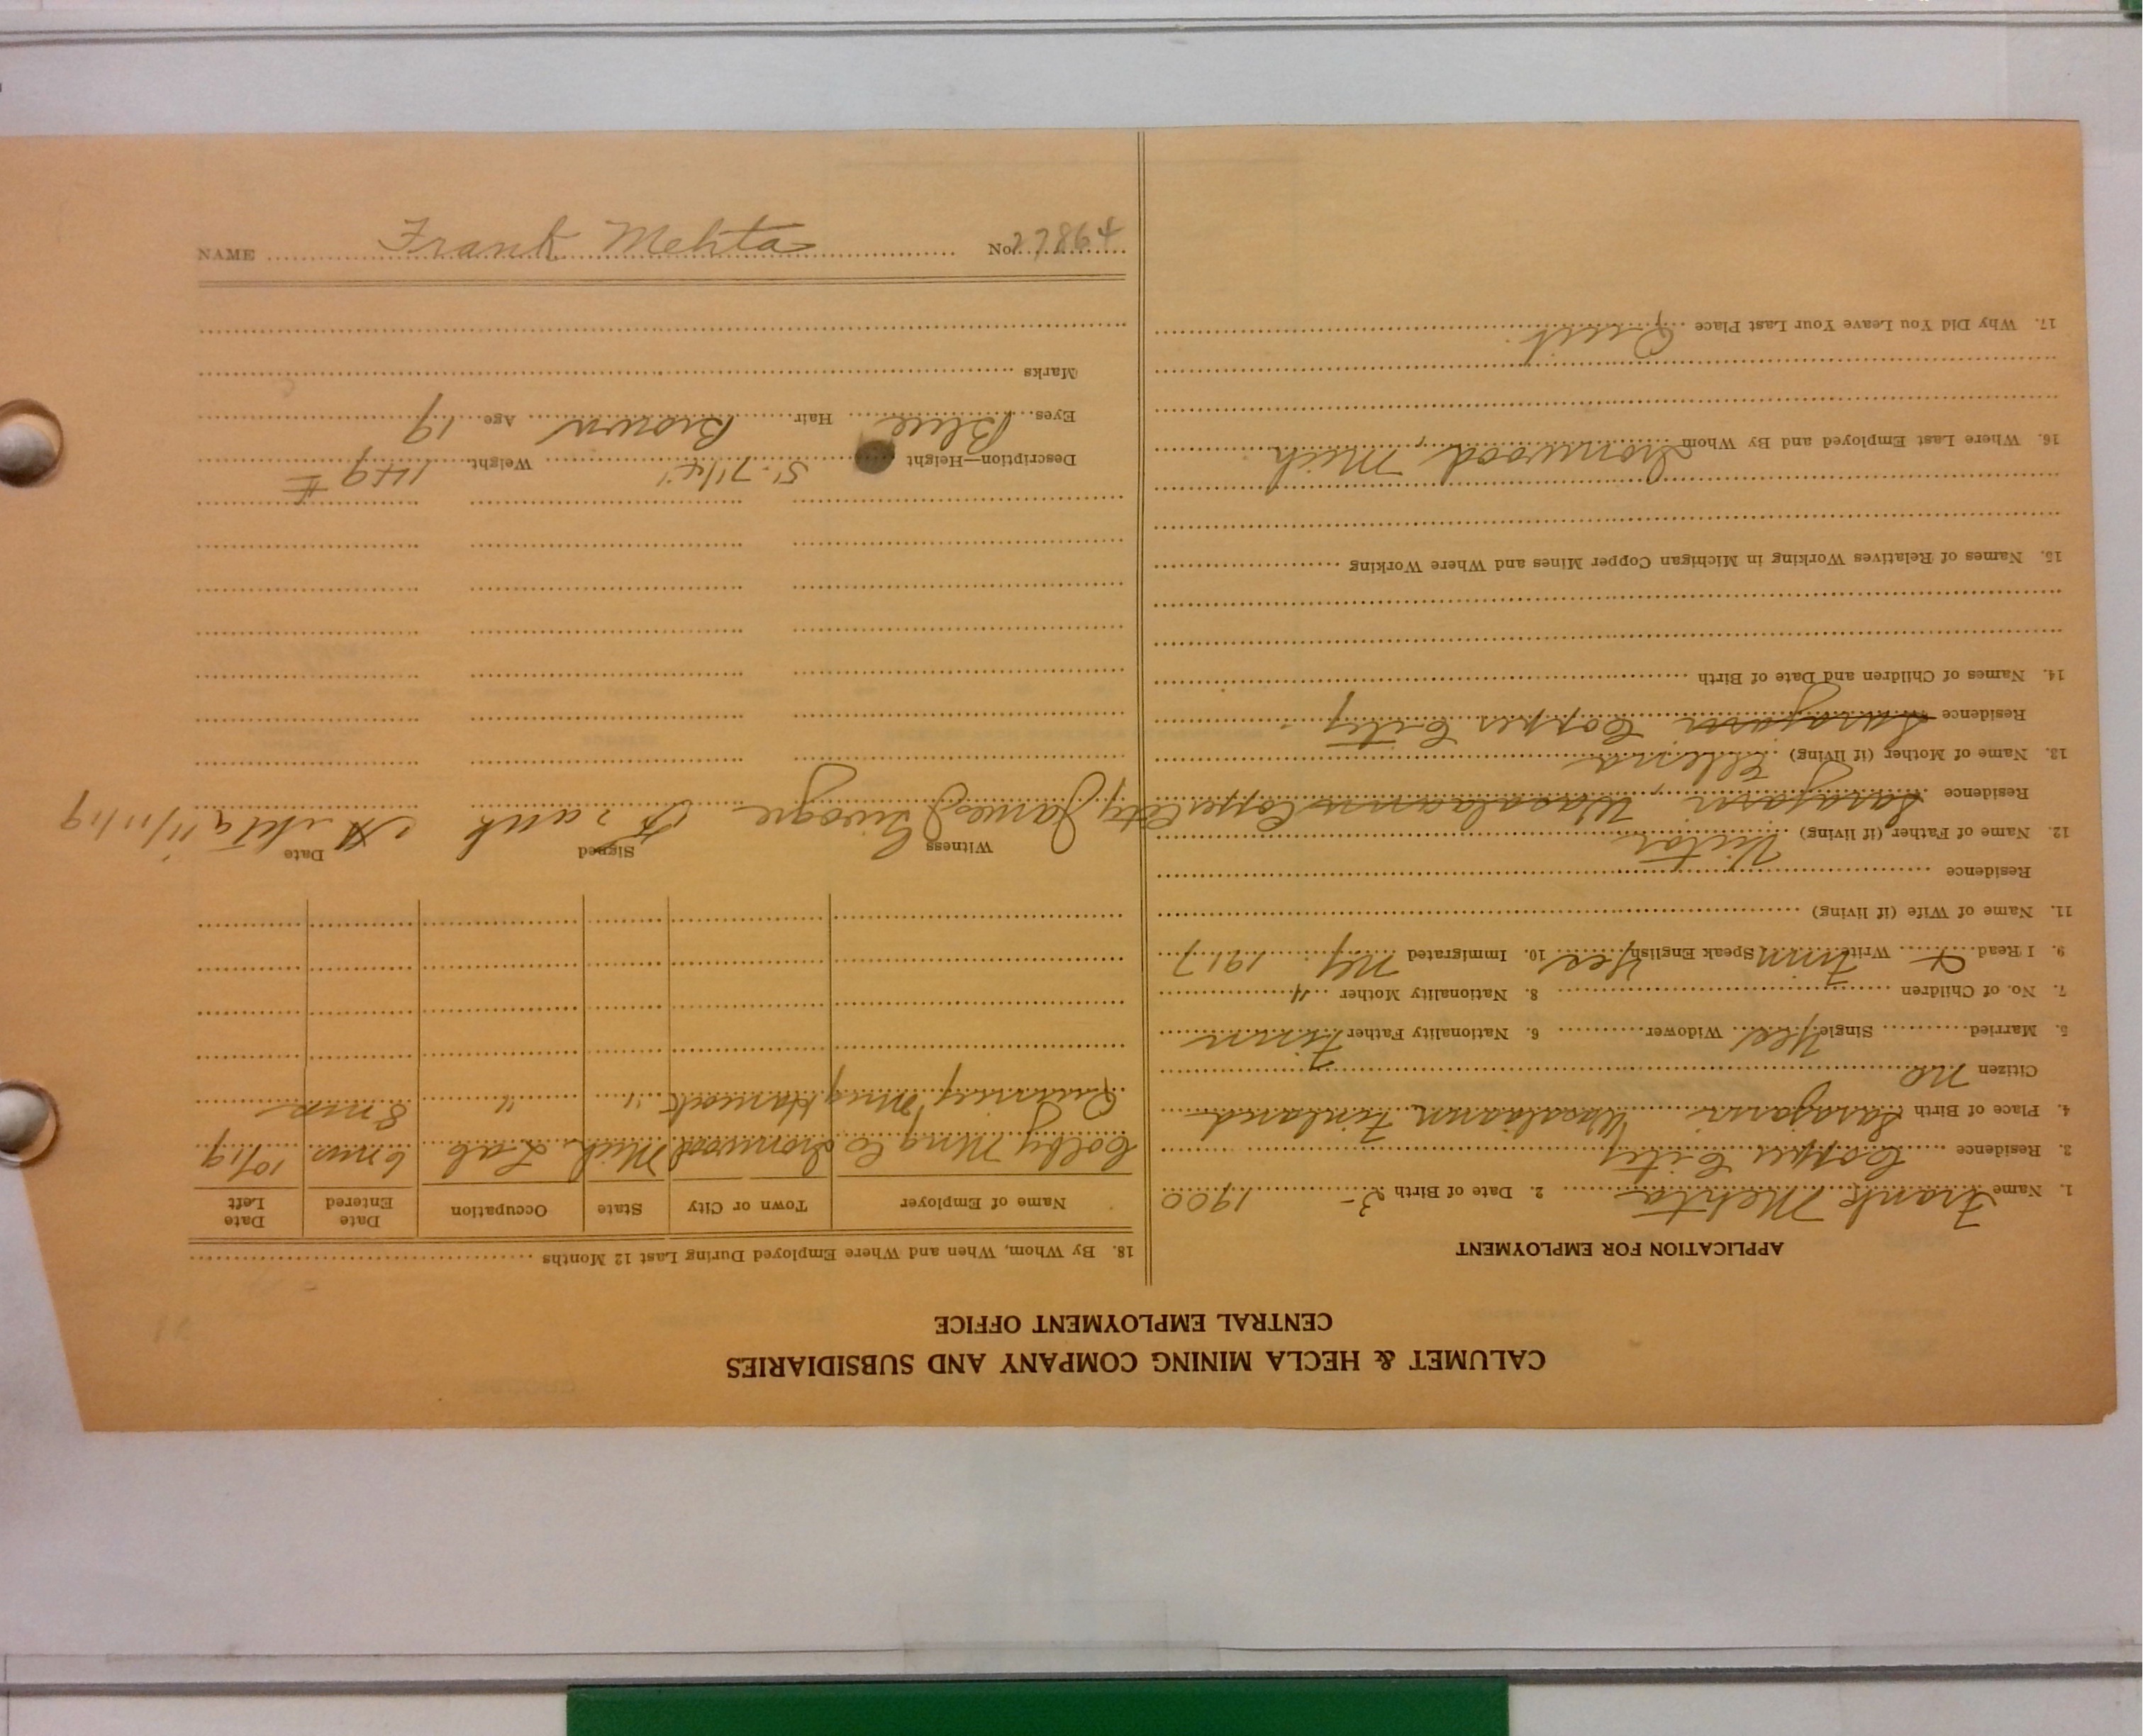 CALUMET & HECLA MINING COMPANY AND SUBSIDIARIES
CENTRAL EMPLOYMENT OFFICE
APPLICATION FOR EMPLOYMENT
1. Name Frank Mehta 2. Date of Birth 3- 1900
3. Residence Copper City
4. Place of Birth Finland
Citizen no
5. Married Single Yes Widower 6. Nationality Father Finn
7. No. of Children 8. Nationality Mother "
9. I Read & Write Finn Speak English Yes 10. Immigrated NY 1917
11. Name of Wife (if living)
Residence
12. Name of Father (if living) Victor
Residence Copper City
13. Name of Mother (if living) Elena
Residence Copper City
14. Names of Children and Date of Birth
15. Names of Relatives Working in Michigan Copper Mines and Where Working
16. Where Last Employed and By Whom Ironwood, Mich
17. Why Did You Leave Your Last Place Quit
18. By Whom, When and Where Employed During Last 12 Months
Name of Employer Town or City State Occupation Date Entered Date Left
Colby Mng Co Ironwood Mich. Lab 6 mos 10/19
Quincy Mng Hancock " " 8 mos
Witness Signed Date
James Frank Mehta 11/11/19
Description—Height 5'-7 1/4" Weight 149 #
Eyes Blue Hair Brown Age 19
Marks
NAME Frank Mehta No. 27864